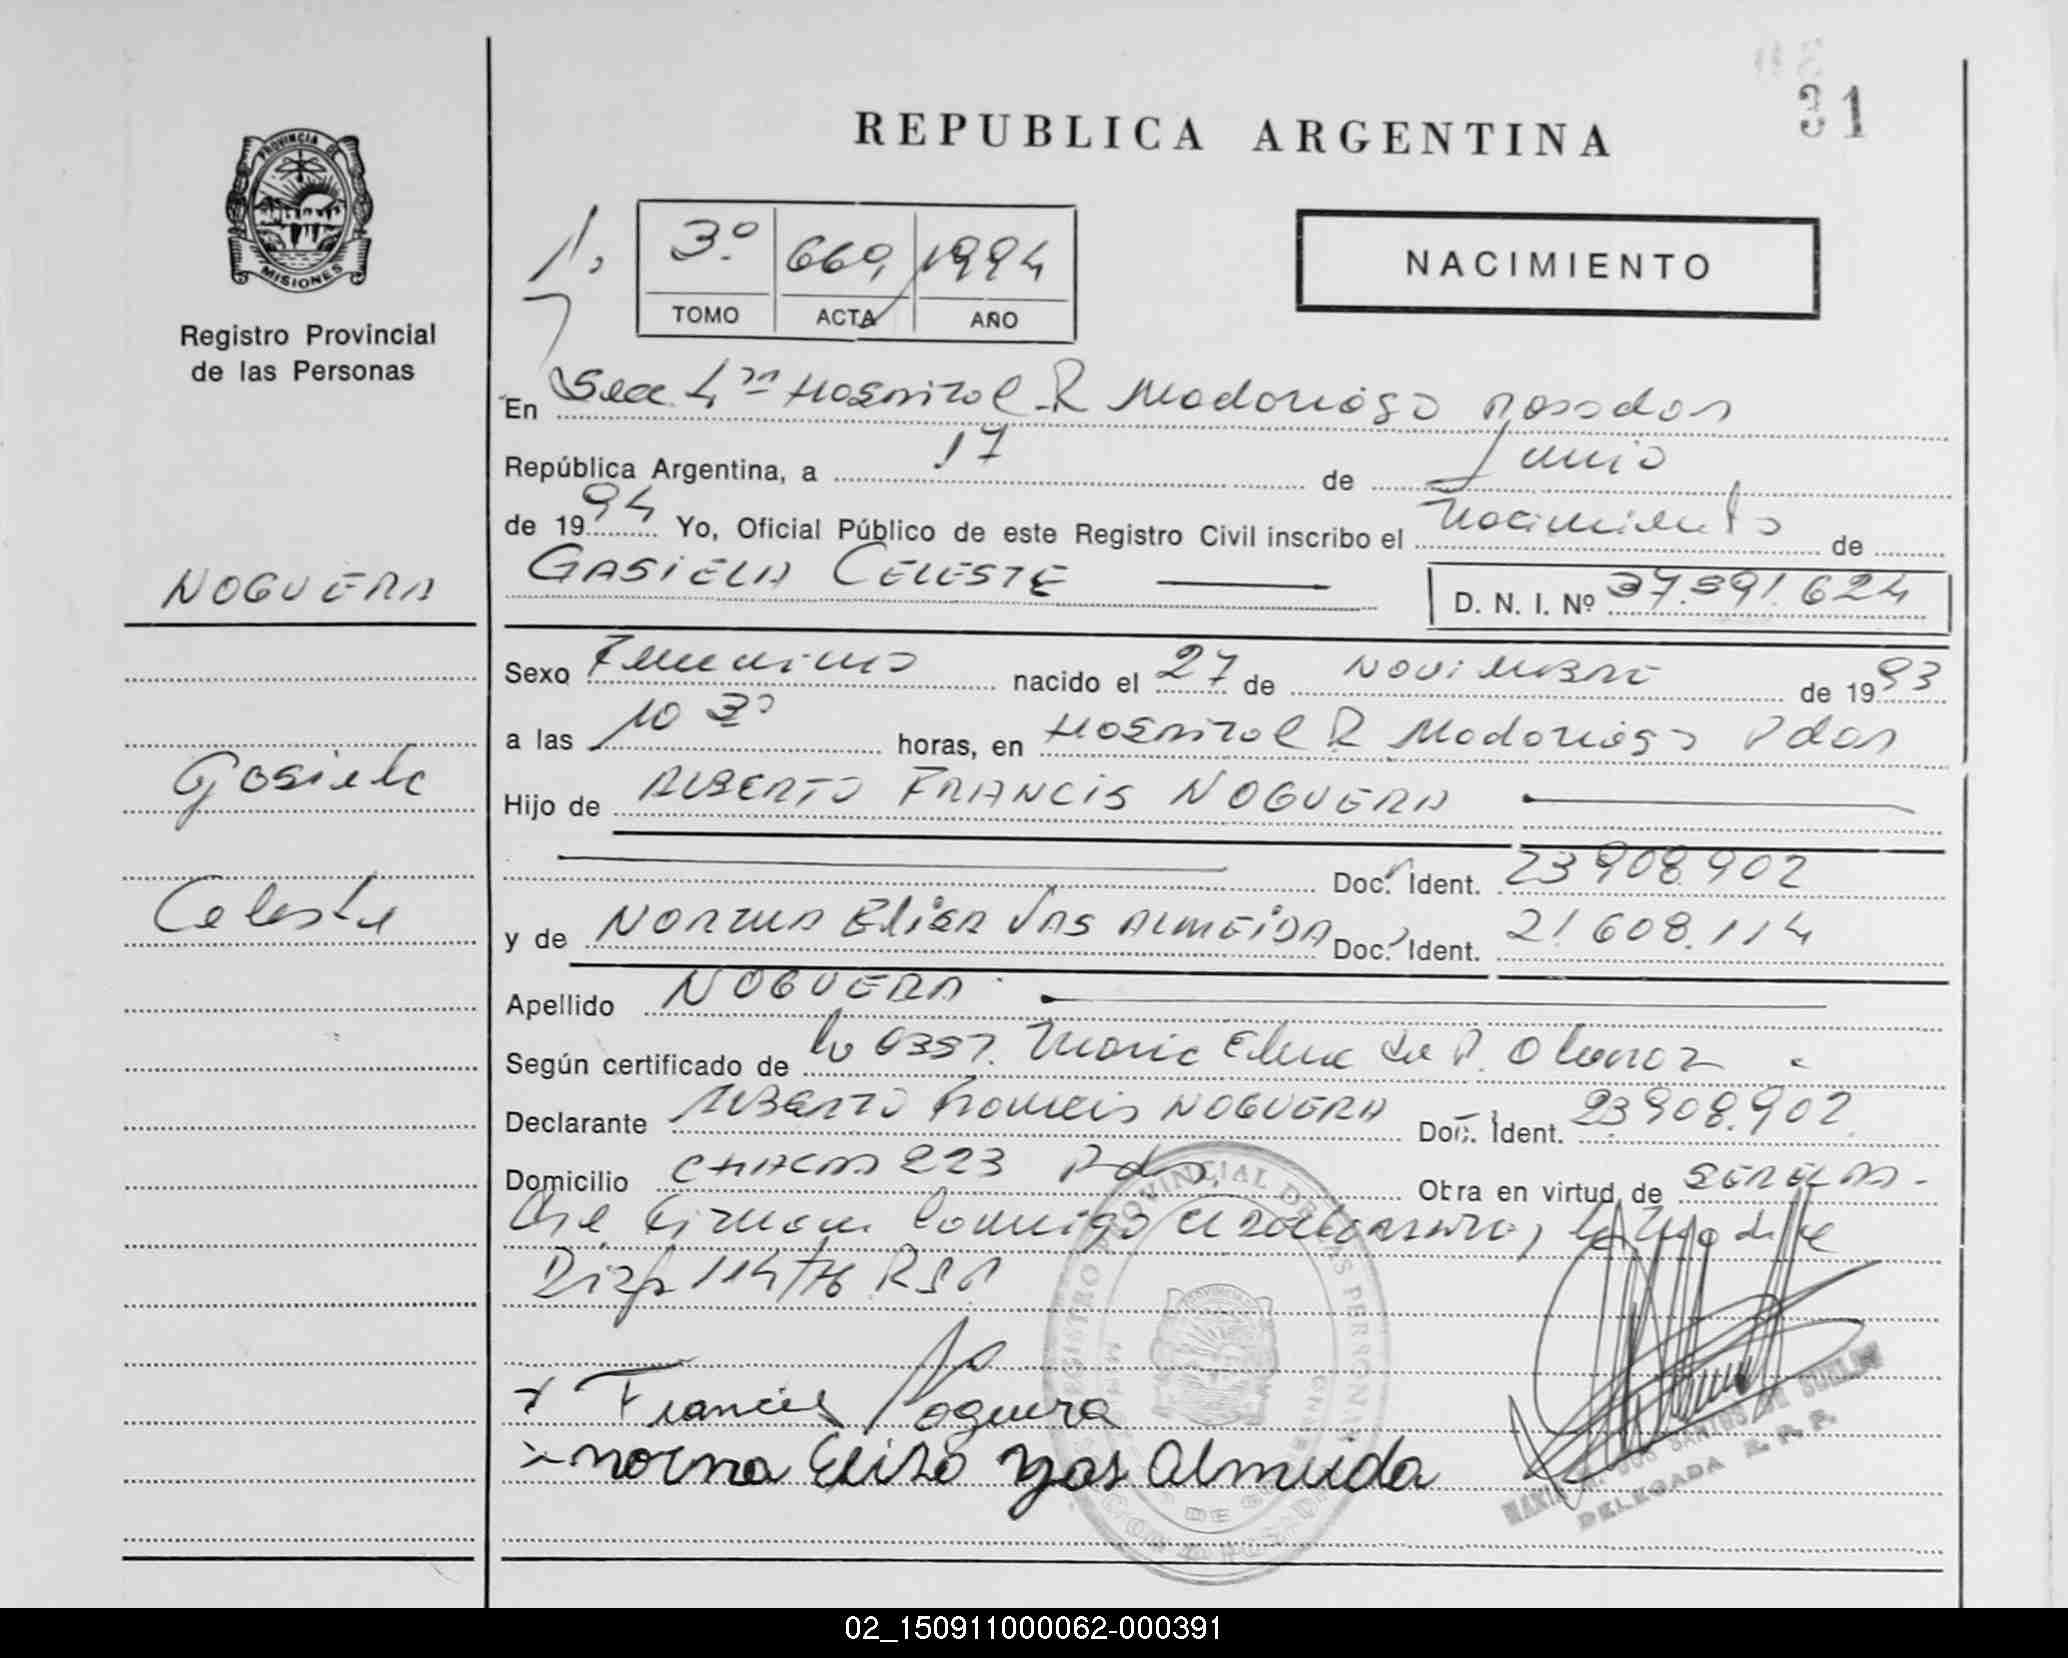 31
REPUBLICA ARGENTINA
PROVINCIA DE
MISIONES
Registro Provincial
de las Personas
3º 660 1994
TOMO ACTA AÑO
NACIMIENTO
En Secc 4ta Hospital R Madariaga Posadas
República Argentina, a 17 de Junio
de 1994 Yo, Oficial Público de este Registro Civil inscribo el Nacimiento de
GASIELA CELESTE D. N. I. Nº 37.391.624
NOGUERA
Sexo Femenino nacido el 27 de NOVIEMBRE de 1993
a las 10 30 horas, en Hospital R Madariaga Pdas
Gasiela
Hijo de ALBERTO FRANCIS NOGUERA
Doc. Ident. 23908.902
Celeste
y de NORMA ELISA VAS ALMEIDA Doc. Ident. 21.608.114
Apellido NOGUERA
Según certificado de la Obst. Maria Elena de
Declarante ALBERTO Francis NOGUERA Doc. Ident. 23908.902
Domicilio CHACRA 223 Pdas, Obra en virtud de SER EL PA-
dre. Firman conmigo el declarante, la madre
Disp 114/76
x Francis Noguera
x norma Elisa yas Almeida
REGISTRO PROVINCIAL DE LAS PERSONAS
DOS SANTOS DE
DELEGADA R. P. P.
02_150911000062-000391